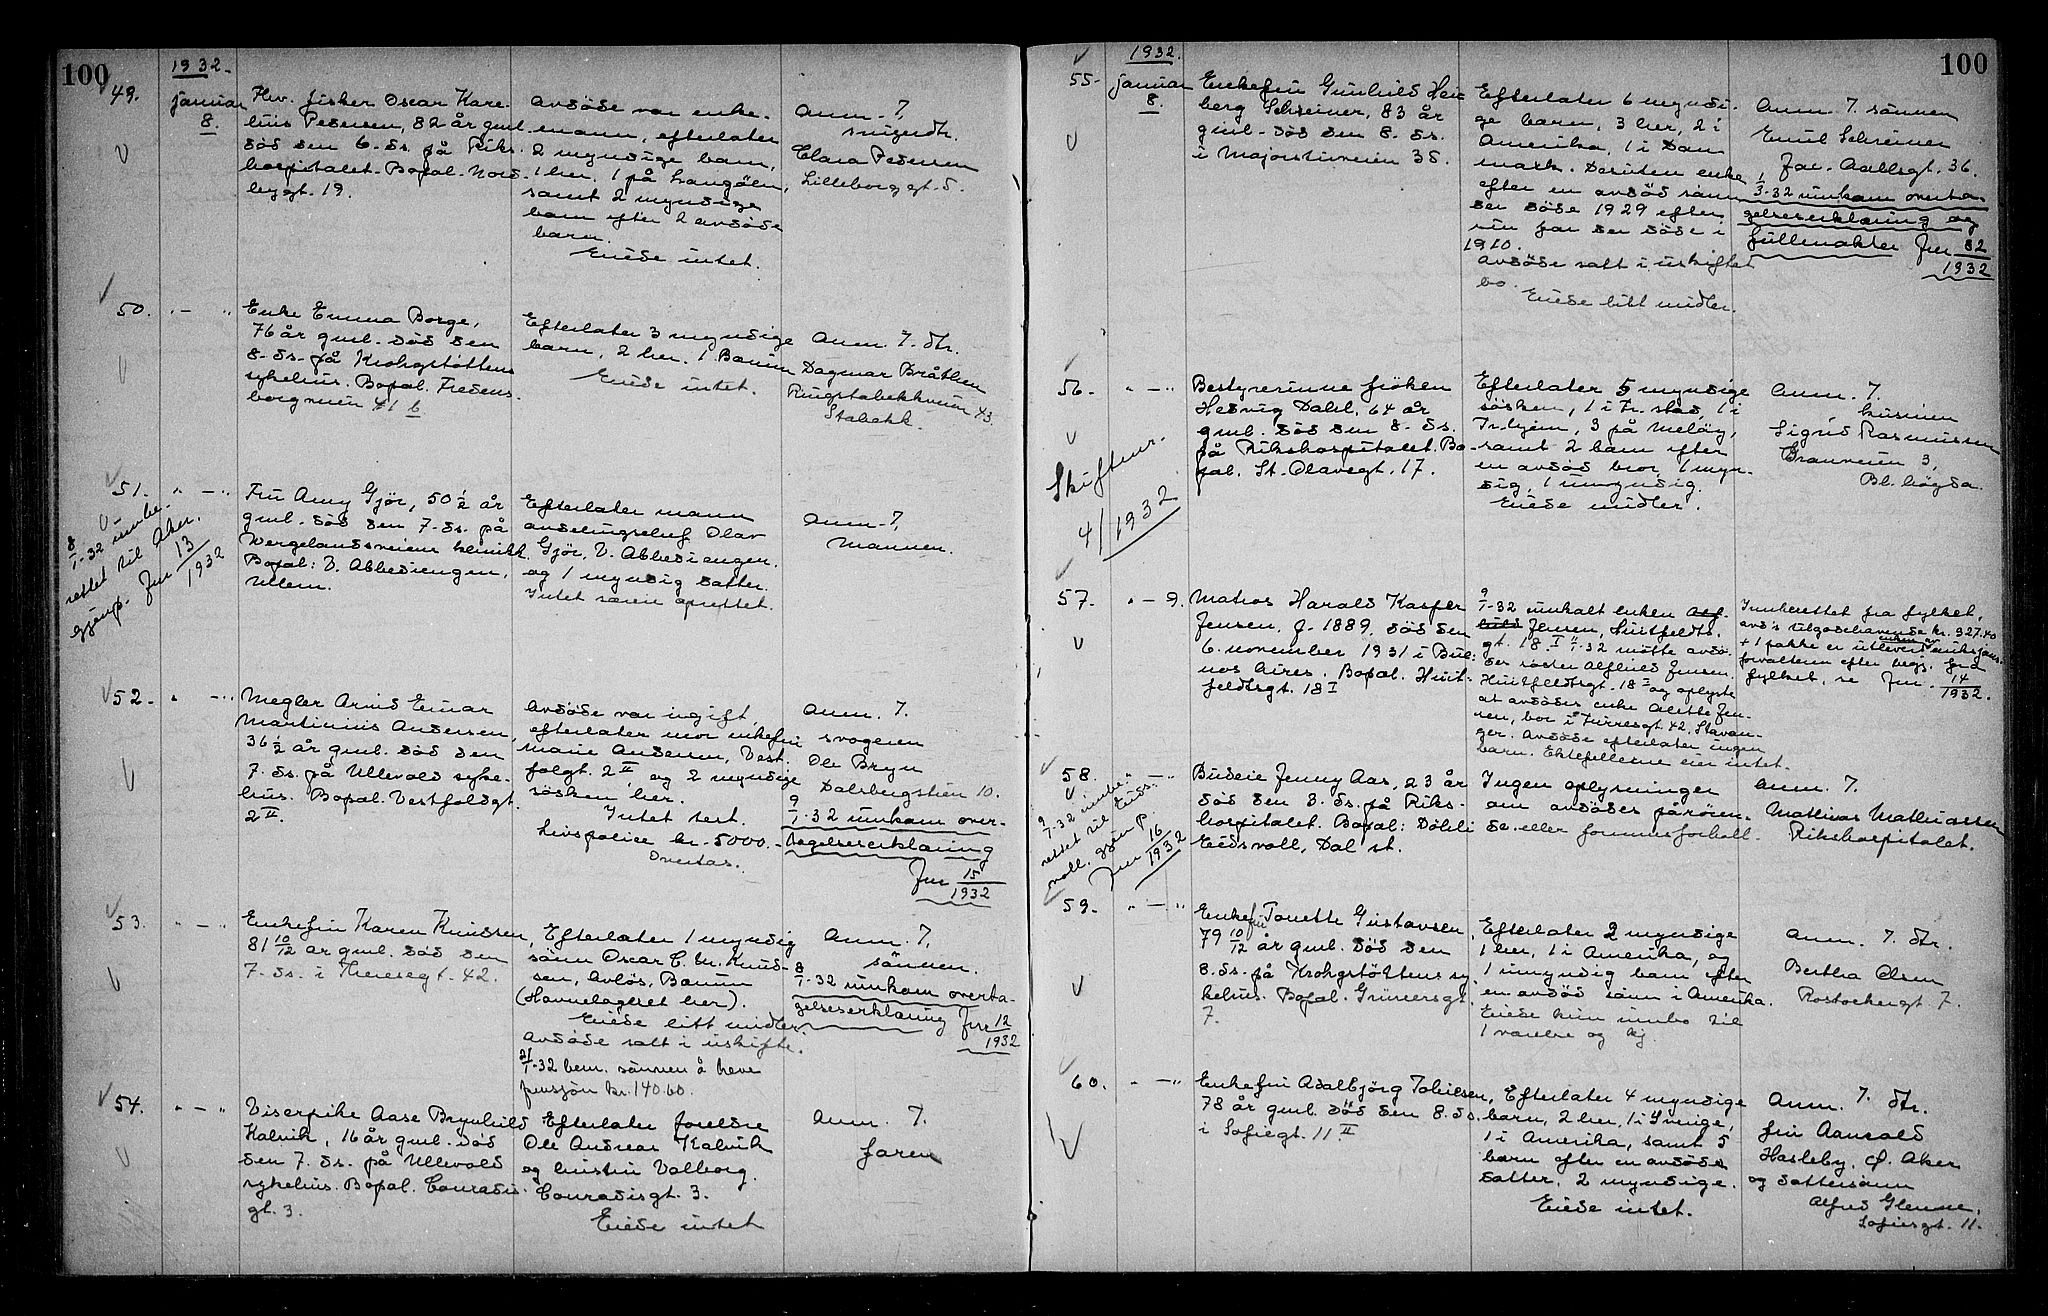 100
1932.
49.
januar
8.
Fhv. fisker Oscar Kare-
lius Pedersen, 82 år gml.
død den 6. ds. på Riks-
hospitalet. Bopal. Nord-
bygt. 19.
Avdøde var enke-
mann, efterlater
2 myndige barn,
1 her, 1 på Langøen,
samt 2 myndige
barn efter 2 avdøde
barn.
Eiede intet.
Anm. 7.
svigerdtr.
Clara Pedersen
Lilleborggt. 5.
50. " — "
Enke Emma Borge,
76 år gml. død den
8. ds. på Krohgstøttens
sykehus. Bopal. Fredens-
borgveien 41 b
Efterlater 3 myndige
barn, 2 her. 1 Bærum
Eiede intet.
Anm. 7. dtr.
Dagmar Bråthen
Ringstabekkveien 43.
Stabekk.
51. " — "
8/1-32 innbe-
rettet til Aker.
gjenp. Jnr 13/1932
Fru Anny Gjør, 50 1/2 år
gml. død den 7. ds. på
Wergelandsveiens klinikk.
Bopal: V. Abbediengen,
Ullern.
Efterlater mann
avdelingschef Olav
Gjør, V. Abbediengen.
og 1 myndig datter.
Intet særeie oprettet.
Anm. 7.
Mannen.
52. " — "
Megler Arvid Einar
Martinius Andersen,
36 1/2 år gml. død den
7. ds. på Ullevold syke-
hus. Bopal. Vestfoldgt.
2 II.
Avdøde var ugift,
efterlater mor enkefru
Marie Andersen, Vest-
foldgt. 2 II og 2 myndige
søsken her.
Intet test.
Livspolice kr. 5000.-
Overtas.
Anm. 7.
svogeren
Ole Bryn
Dalsbergstien 10.
9/1-32 innkom over-
tagelseserklæring
Jnr 15/1932
53. " — "
Enkefru Karen Knudsen,
81 10/12 år gml. død den
7. ds. i Theresegt. 42.
Efterlater 1 myndig
sønn Oscar C. M. Knud-
sen, Avløs, Bærum
(Havnelageret her).
Eiede litt midler.
Avdøde satt i uskifte.
21/1-32 bem. sønnen å heve
pensjon kr. 140.60.
Anm. 7.
sønnen.
8/1-32 innkom overta-
gelseserklæring Jnr 12/1932
54. " — "
Viserpike Aase Brynhild
Kalvik, 16 år gml. død
den 7. ds. på Ullevold
sykehus. Bopal. Conradis-
gt. 3.
Efterlater foreldre
Ole Andreas Kalvik
og hustru Valborg.
Conradisgt. 3.
Eiede intet
Anm. 7.
faren
100
1932.
55.
januar
8.
Enkefru Gunhild
berg Schreiner, 83 år
gml. død den 8. ds.
i Majorstuveien 35.
Efterlater 6 myndi-
ge barn, 3 her, 2 i
Amerika, 1 i Dan
mark. Desuten enke
efter en avdød sønn
der døde 1929 efter
sin far der døde i
1910.
Avdøde satt i uskiftet
bo.
Eiede litt midler.
Anm. 7. sønnen
Emil Schreiner
Jac. Aallsgt. 36.
1/3-32 innkom overta-
gelseserklæring og
fullmakter Jnr 82/1932
56. " — "
Skiftenr.
4/1932
Bestyrerinne frøken
Hedvig Dahl, 64 år
gml. død den 8. ds.
på Rikshospitalet. Bo-
pal. St. Olavsgt. 17.
Efterlater 5 myndige
søsken, 1 i Fr.stad, 1 i
Tr.hjem, 3 på Meløy,
samt 2 barn efter
en avdød bror, 1 myn-
dig, 1 umyndig.
Eiede midler.
Anm. 7.
kusinen
Sigrid Rasmussen
Granveien 3,
Bl. høgda.
57. " — 9.
Matros Harald Kasper
Jensen, f. 1889, død den
6. november 1931 i Bue-
nos Aires. Bopal. Huit-
feldtsgt. 18 I
9/1-32 innkalt enken Alf-
hild Jensen, Huitfeldts-
gt. 18 I. 11/1-32 møtte avdø-
des søster Alfhild Jensen
Huitfeldtsgt. 18 I og oplyste
at avdødes enke Alette Jen-
sen, bor i Furresgt 42, Stavan-
ger. Avdøde efterlater ingen
barn. Ektefellene eier intet.
Innberettet fra fylket,
avd's tilgodehavende kr. 327.40
+ 1 pakke er utlevert enken av riksfors.
forvalteren efter begj. fra
fylket, se Jnr. 14/1932.
58. " — "
9/1-32 innbe-
rettet til Eids-
voll. gjenp.
Jnr 16/1932
Budeie Jenny Aas, 23 år
død den 8. ds. på Riks-
hospitalet. Bopal: Døhli
Eidsvoll, Dal st.
Ingen oplysninger
om avdødes pårøren-
de eller formuesforhold.
Anm. 7.
Mathias Mathiassen
Rikshospitalet.
59. " — "
Enkefru Tonette Gustavsen,
79 10/12 år gml. død den
8. ds. på Krohgstøttens sy
kehus. Bopal. Grünersgt.
7.
Efterlater 2 myndige
1 her, 1 i Amerika, og
1 umyndig barn efter
en avdød sønn i Amerika.
Eiede kun innbo til
1 værelse og kj.
Anm. 7. dtr.
Bertha Olsen
Rostockergt 7.
60. " — "
Enkefru Adalbjörg Tobiesen,
78 år gml. død den 8. ds.
i Sofiegt. 11 II
Efterlater 4 myndige
barn, 2 her, 1 i Sverige,
1 i Amerika, samt 5
barn efter en avdød
datter, 2 myndige.
Eiede intet.
Anm. 7. dtr.
fru Aanvald
Hasleby, Ø. Aker
og dattersønn
Alfred Glenne,
Sofiegt. 11.